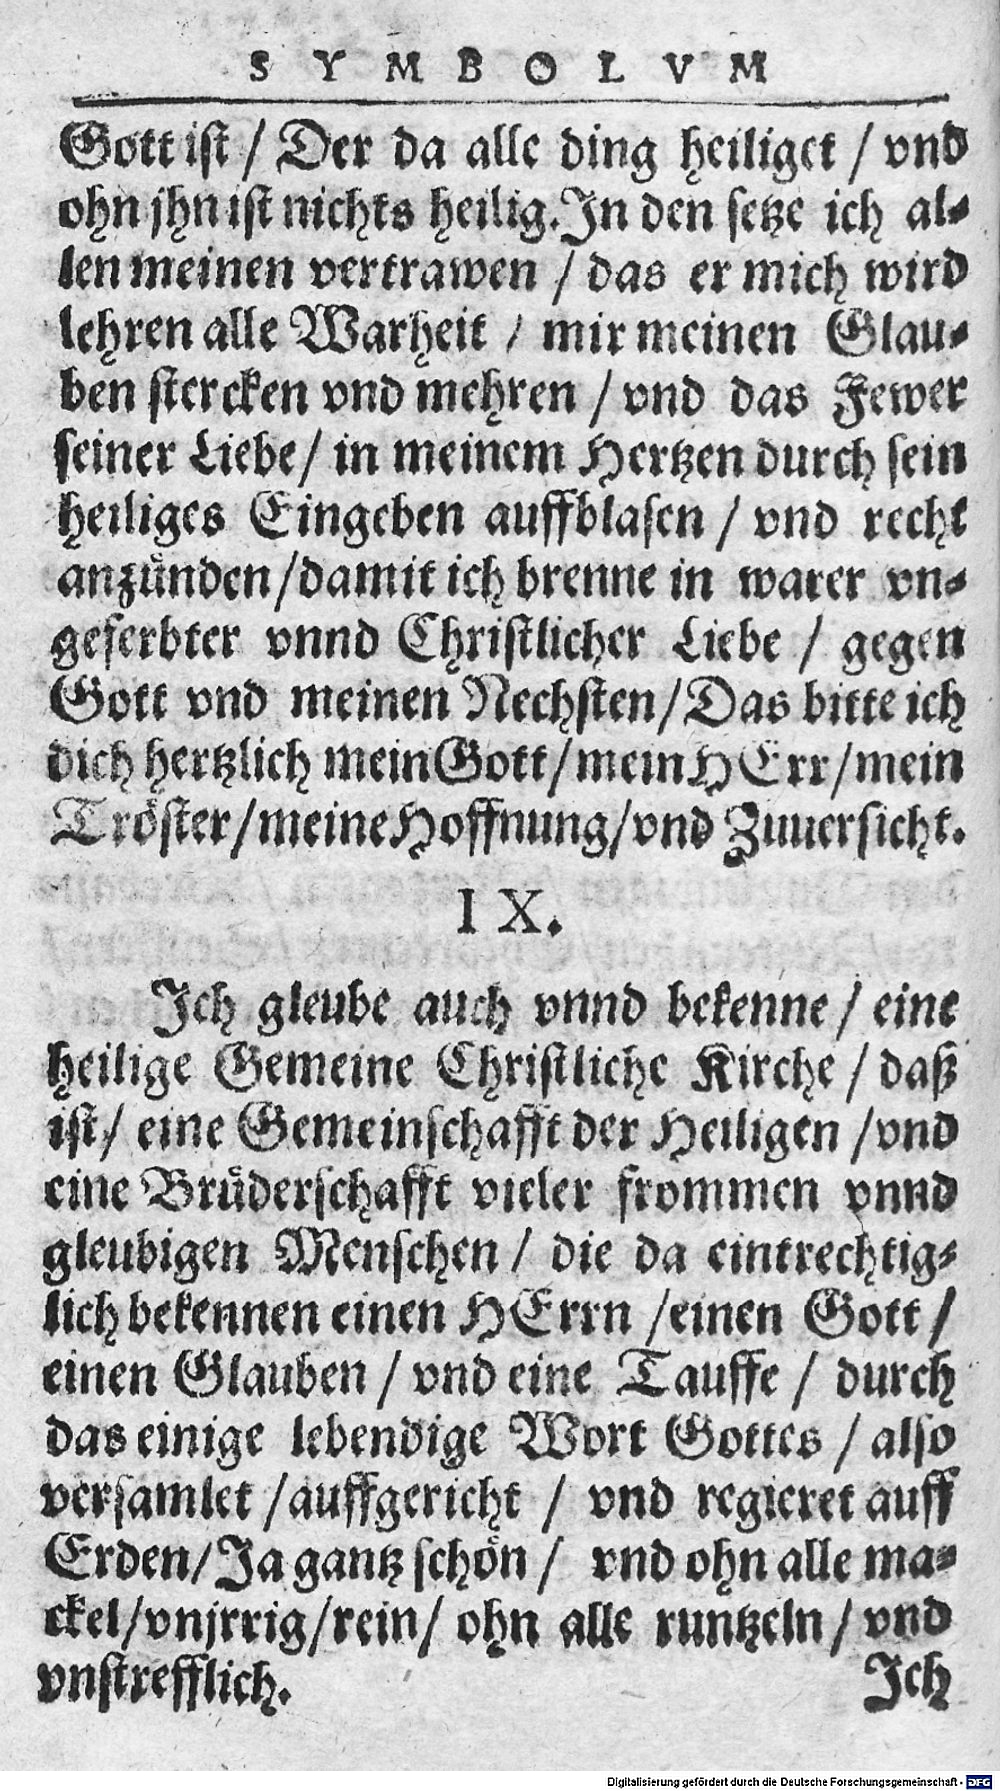 SYMBOLVM
Gott ist / Der da alle ding heiliget / vnd
ohn jhn ist nichts heilig. In den setze ich al-
len meinen vertrawen / das er mich wird
lehren alle Warheit / mir meinen Glau-
ben stercken vnd mehren / vnd das Fewer
seiner Liebe / in meinem Hertzen durch sein
heiliges Eingeben auffblasen / vnd recht
anzünden / damit ich brenne in warer vn-
geferbter vnnd Christlicher Liebe / gegen
Gott vnd meinen Nechsten / Das bitte ich
dich hertzlich mein Gott / mein HErr / mein
Tröster / meine Hoffnung / vnd Zuuersicht.
IX.
Ich gleube auch vnnd bekenne / eine
heilige Gemeine Christliche Kirche / daß
ist / eine Gemeinschafft der Heiligen / vnd
eine Brüderschafft vieler frommen vnnd
gleubigen Menschen / die da eintrechtig-
lich bekennen einen HErrn / einen Gott /
einen Glauben / vnd eine Tauffe / durch
das einige lebendige Wort Gottes / also
versamlet / auffgericht / vnd regieret auff
Erden / Ja gantz schön / vnd ohn alle ma-
ckel / vnjrrig / rein / ohn alle runtzeln / vnd
vnstrefflich.
Ich
Digitalisierung gefördert durch die Deutsche Forschungsgemeinschaft - DFG